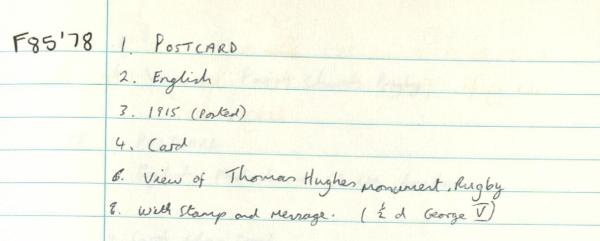 F85'78 1. POSTCARD
2. English
3. 1915 (Posted)
4. Card
6. View of Thomas Hughes monument, Rugby
8. With Stamp and Message. (½ d George V)